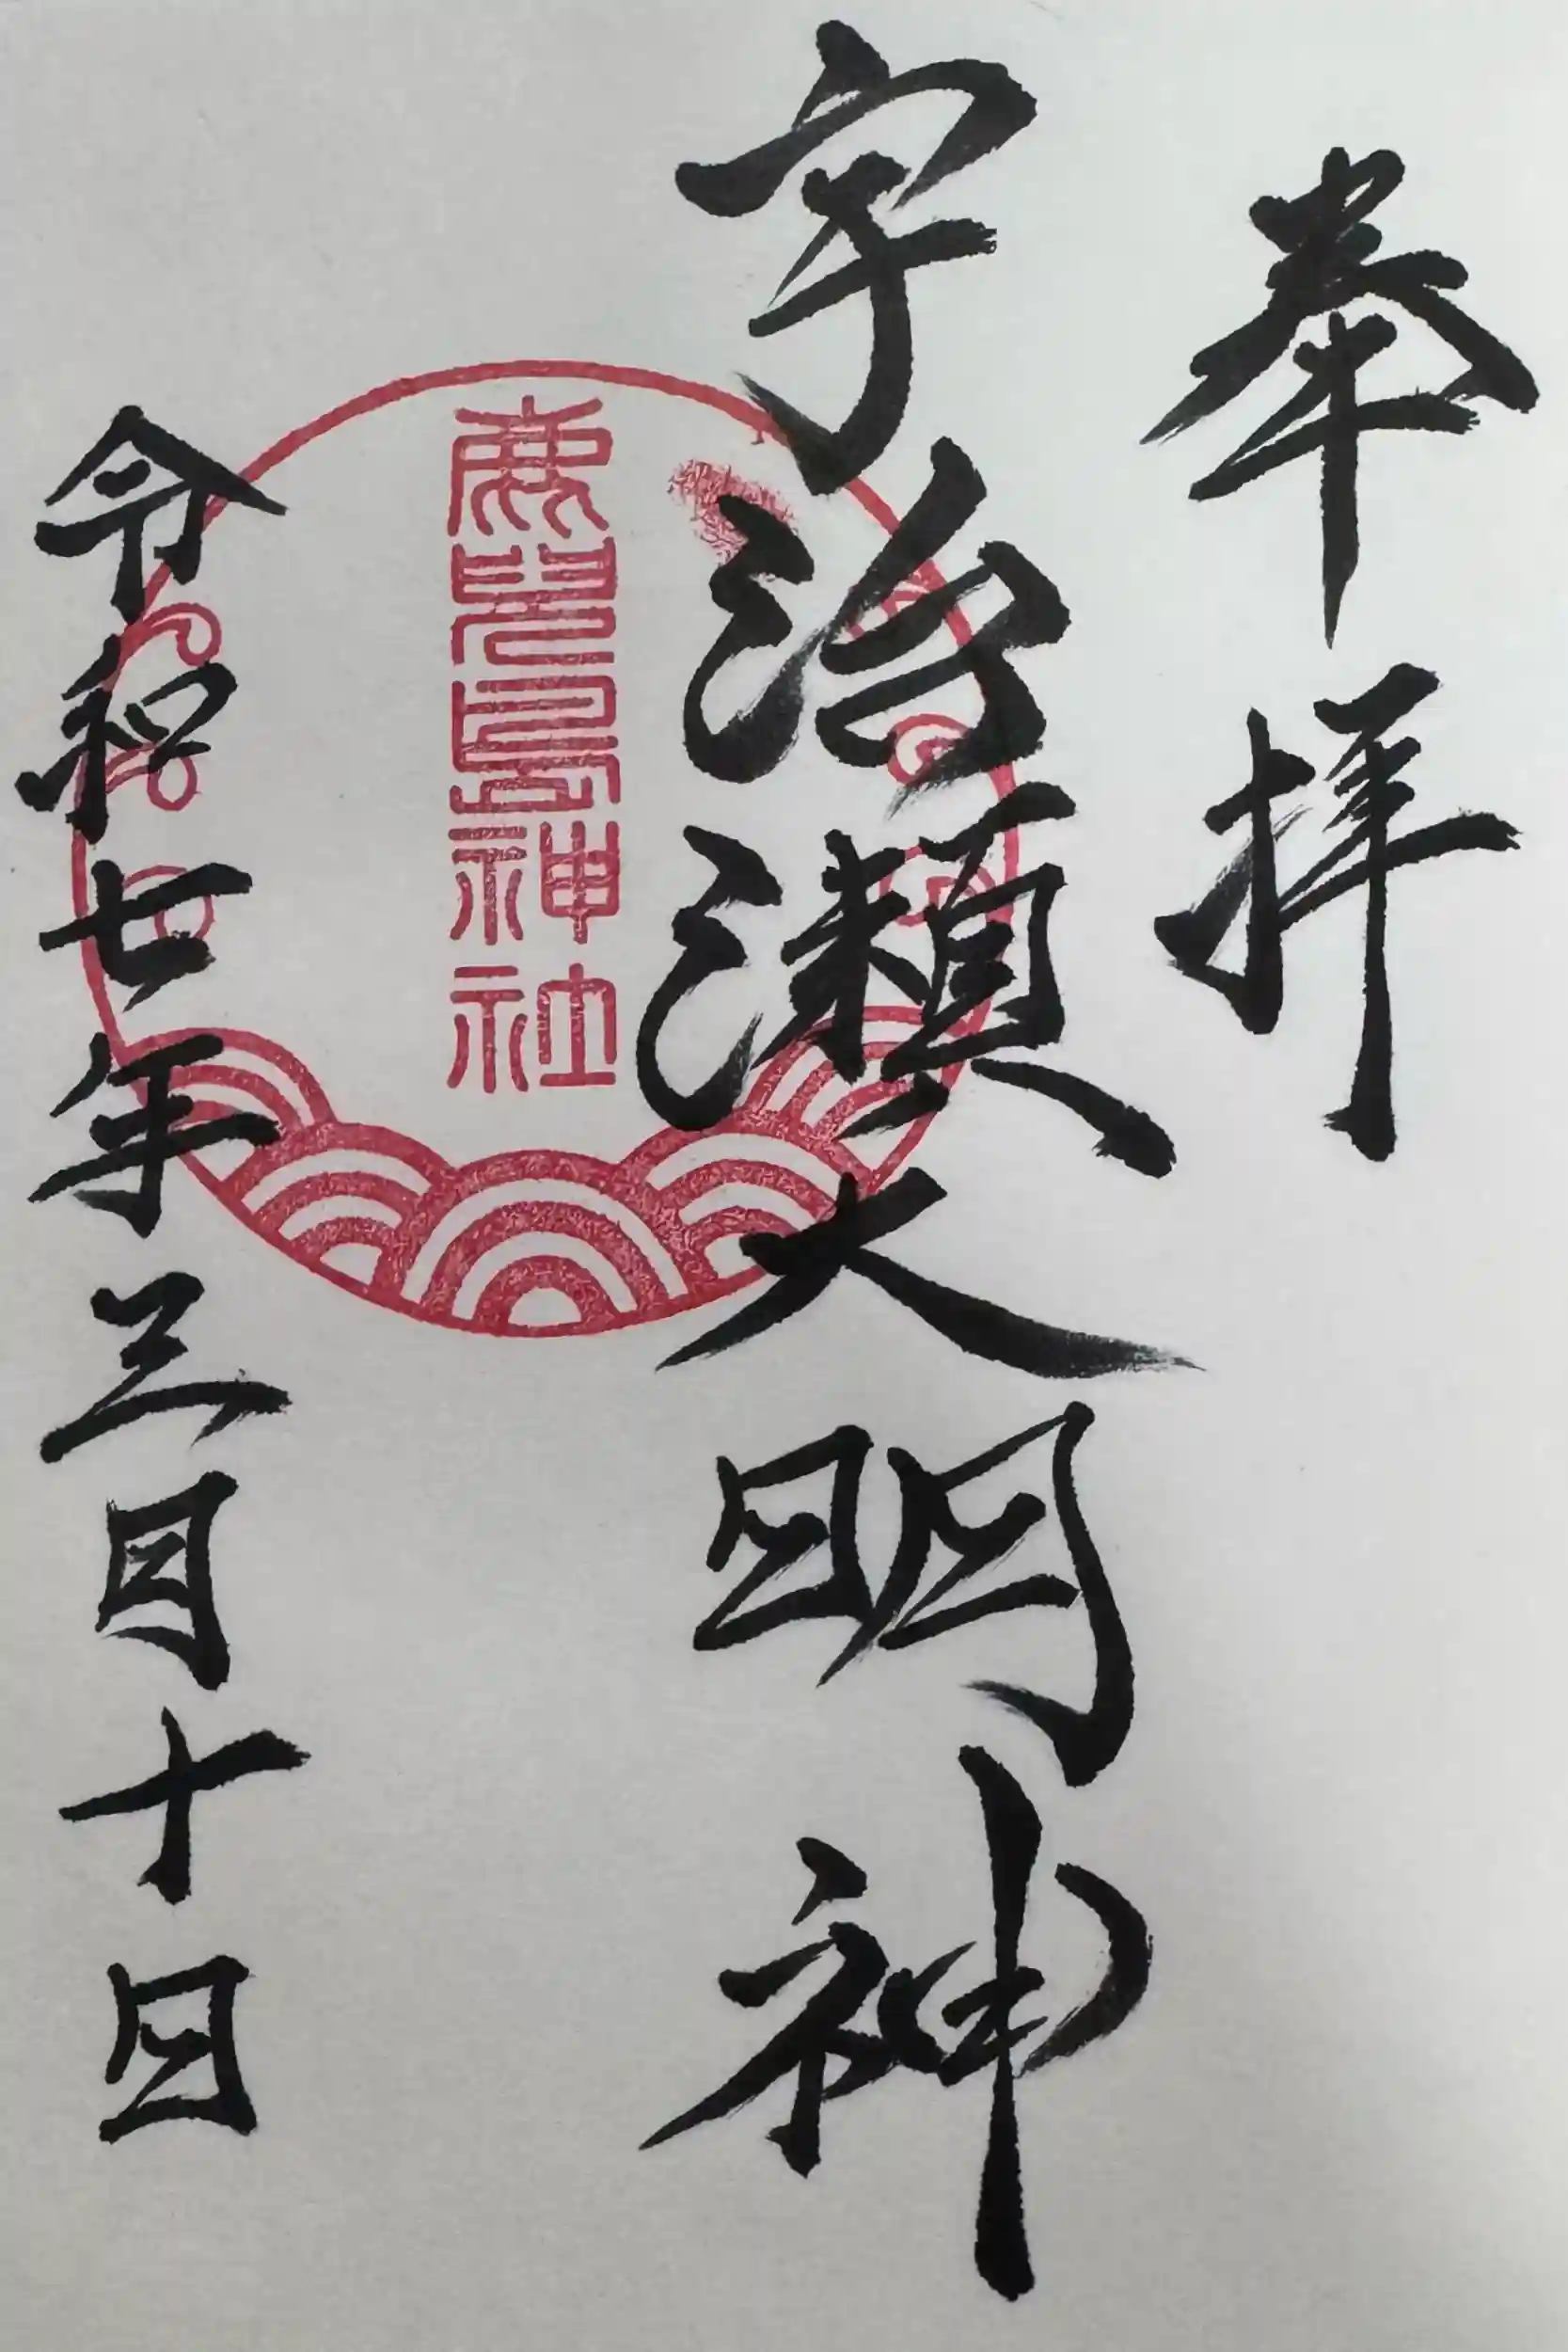 奉拝
宇治瀬大明神
鹿児島神社
令和七年三月十日